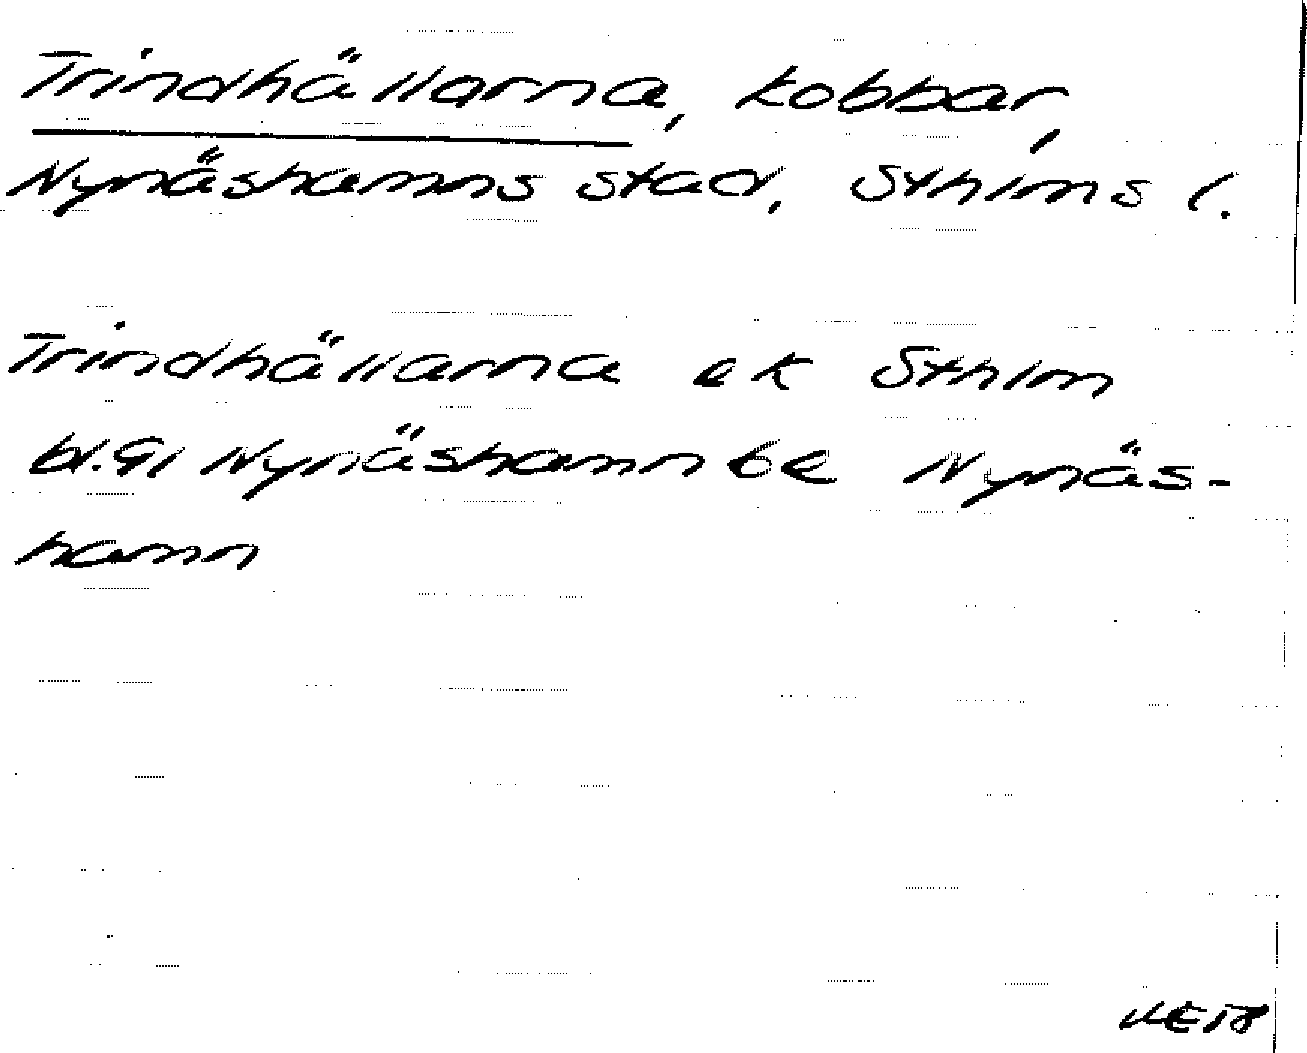 Trindhällarna, kobbar,
Nynäshamns stad, Sthlms l.
Trindhällarna ek Sthlm
bl. 91 Nynäshamn 6e Nynäs-
hamn